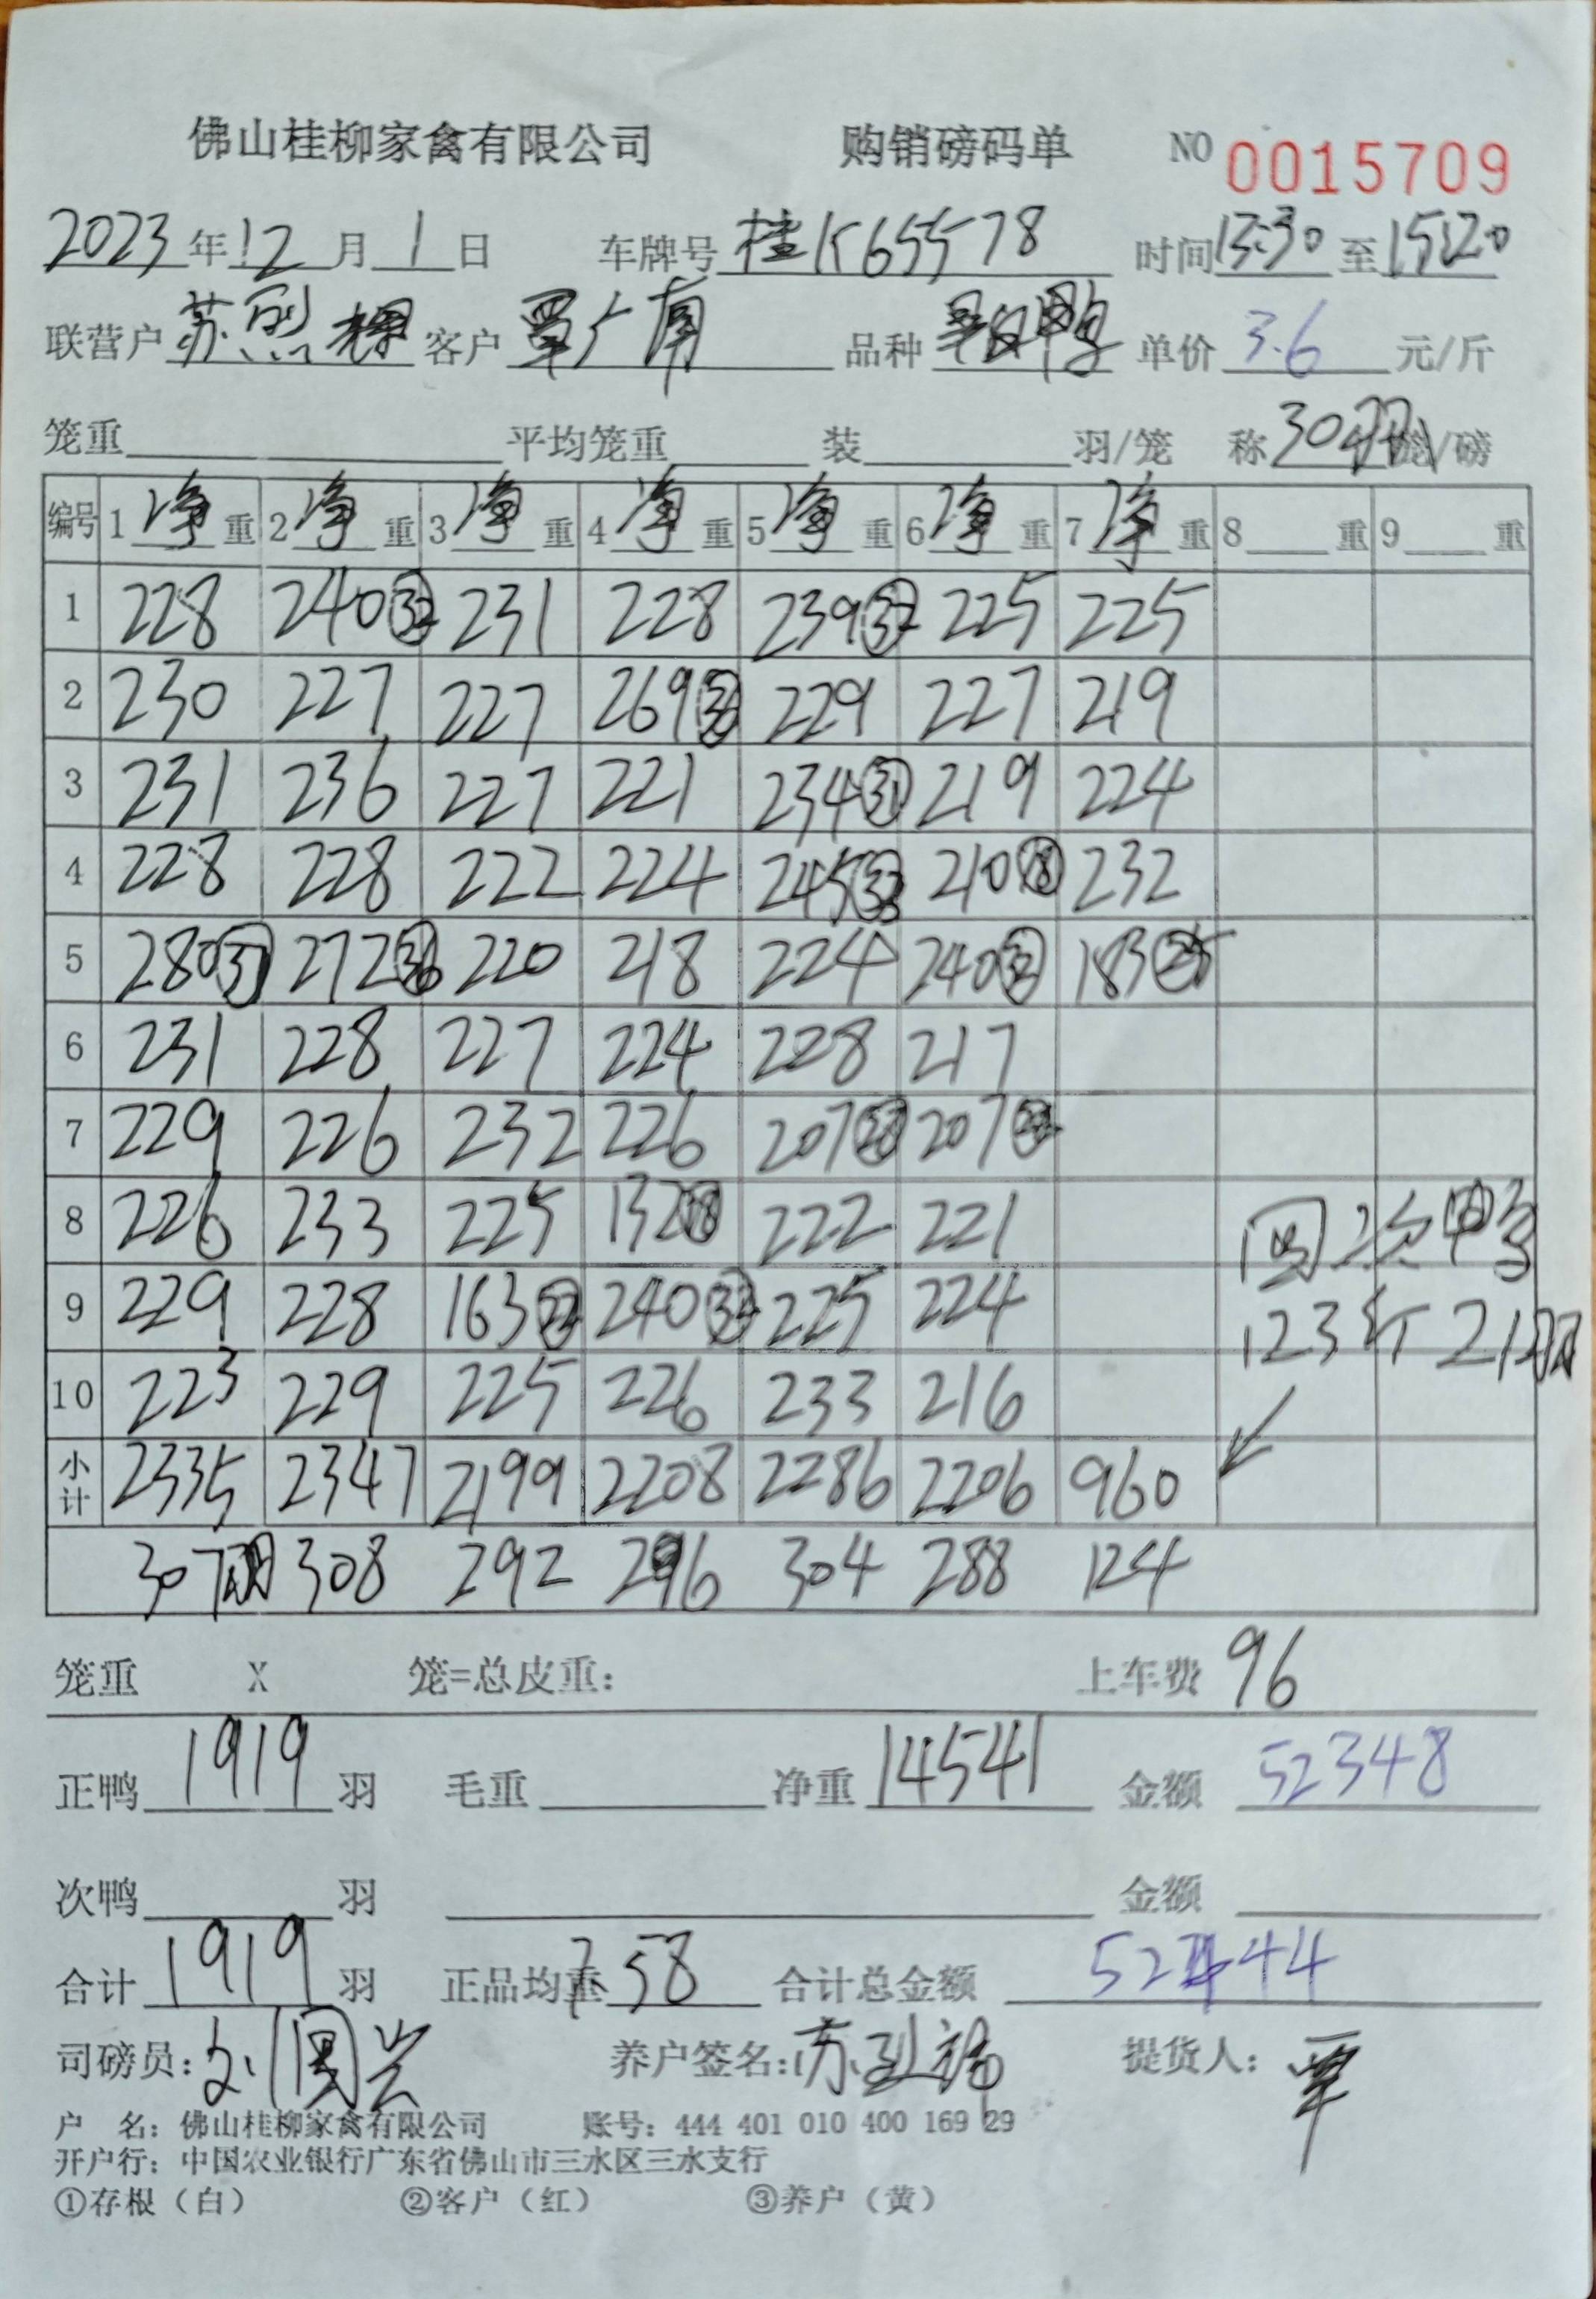 佛山桂柳家禽有限公司 购销磅码单 NO 0015709
2023年12月1日 车牌号 桂K65578 时间 13:30 至 15:20
联营户 苏 客户 覃广南 品种 鸭 单价 3.6 元/斤
笼重 平均笼重 装 羽/笼 称 30羽 笼/磅
编号 1 净 重 2 净 重 3 净 重 4 净 重 5 净 重 6 净 重 7 净 重 8 重 9 重
1 228 240 32 231 228 239 32 225 225
2 230 227 227 269 36 229 227 219
3 231 236 227 221 234 31 219 224
4 228 228 222 224 245 33 210 28 232
5 280 37 272 36 220 218 224 240 32 183 25
6 231 228 227 224 228 217
7 229 226 232 226 207 28 207
8 226 233 225 132 18 222 221
9 229 228 163 22 240 32 225 224
10 223 229 225 226 233 216
次鸭
123斤 21羽
小计 2335 2347 2199 2208 2286 2206 960
307羽 308 292 296 304 288 124
笼重 X 笼=总皮重: 上车费 96
正鸭 1919 羽 毛重 净重 14541 金额 52348
次鸭 羽 金额
合计 1919 羽 正品均重 7.58 合计总金额 52444
司磅员: 刘国兴 养户签名: 苏 提货人: 覃
户 名: 佛山桂柳家禽有限公司 账号: 444 401 010 400 169 29
开户行: 中国农业银行广东省佛山市三水区三水支行
①存根（白） ②客户（红） ③养户（黄）